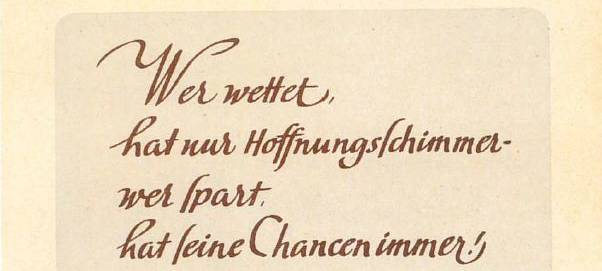 Wer wettet,
hat nur Hoffnungsſchimmer-
wer ſpart,
hat ſeine Chancen immer!